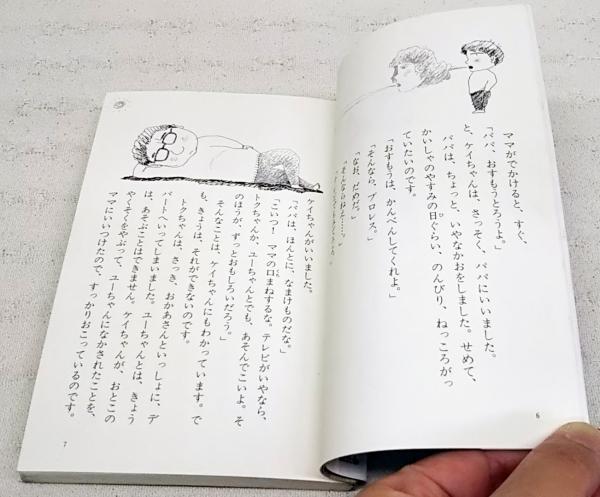 ママがでかけると、すぐ、
「パパ、おすもうとろうよ。」
と、ケイちゃんは、さっそく、パパにいいました。
パパは、ちょっと、いやなかおをしました。せめて、
かいしゃのやすみの日ぐらい、のんびり、ねっころがっ
ていたいのです。
「おすもうは、かんべんしてくれよ。」
「そんなら、プロレス。」
「なお、だめだ。」
「そんならねえ……。」
6
ケイちゃんがいいました。
「パパは、ほんとに、なまけものだな。」
「こいつ！ ママの口まねするな。テレビがいやなら、
トクちゃんか、ユーちゃんとでも、あそんでこいよ。そ
のほうが、ずっとおもしろいだろう。」
そんなことは、ケイちゃんにもわかっています。で
も、きょうは、それができないのです。
トクちゃんは、さっき、おかあさんといっしょに、デ
パートへいってしまいました。ユーちゃんとは、きょう
は、あそぶことはできません。ケイちゃんが、おとこの
やくそくをやぶって、ユーちゃんになかされたことを、
ママにいいつけたので、すっかりおこっているのです。
7